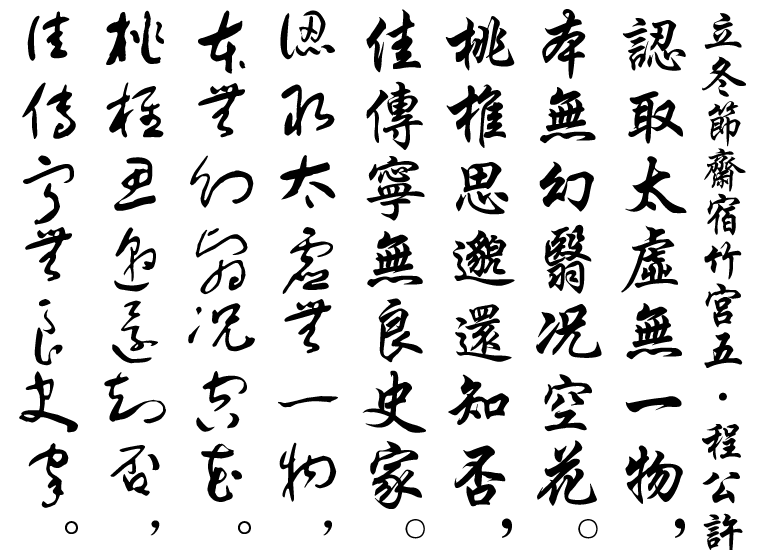 立冬節齋宿竹宮五・程公許
認取太虛無一物，
本無幻翳況空花。
桃椎思邈還知否，
佳傳寧無良史家。
認取太虛無一物，
本無幻翳況空花。
桃椎思邈還知否，
佳傳寧無良史家。